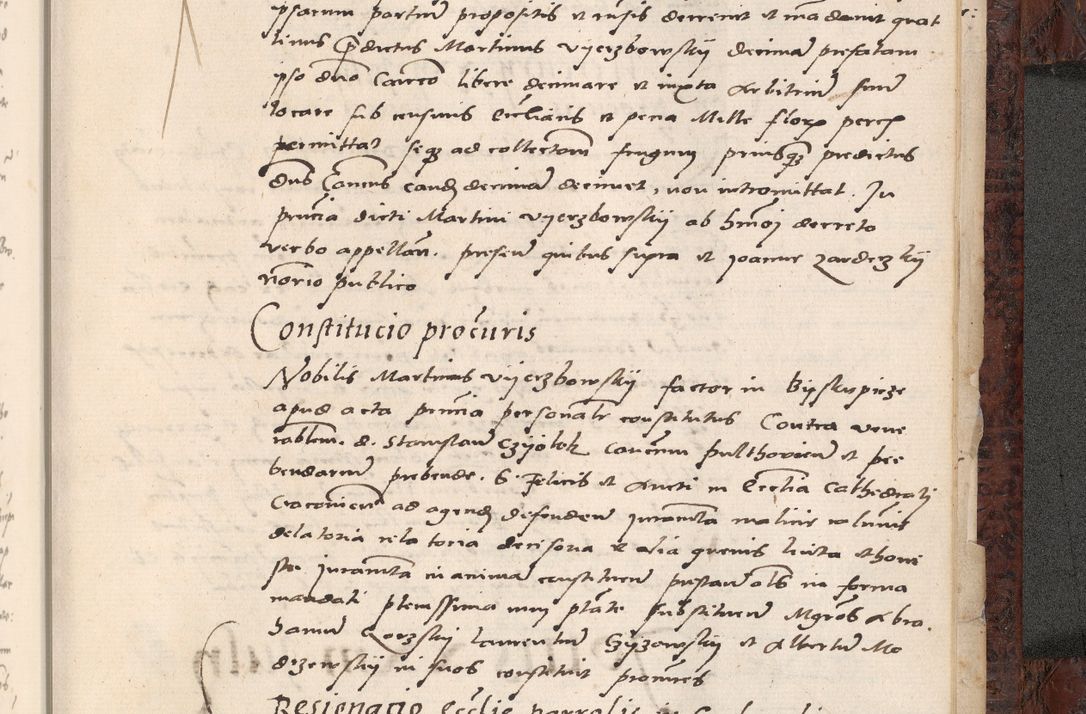 ipsarum partium propositis et visis decrevit et mandavit quat
tinus Predictus Martinus Vyerzbowskij decimam prefatam
ipso dno Canco libere decimare et iuxta Arbitrium suum
locare sub censuris Ecclianis et pena Mille flor
permittat seqz ad collectam frugum priusqz predictus
dns Cancus eand decimam decimet, non intromittat. In
pncia dicti Martini Vyerzbowskij ab hmoi decreto
verbo appellan. presen quibus supra et Joanne Zarderzkij
notrio publico
Constitucio procuris
Nobilis Martinus Vyerzbowskij factor in Byskupicze
apud acta pencia personalr constitutus Contra vene
rablem. d. Stanislaum Czyolek Canonum pulthovien et pre
bendarium prebende. S. Felicis et Aucti in Ecclia Cathedrali
Cracovien ad agend defenden Juramta malicie calumnie
delatoria relatoria decisoria et alia quevis licita et hone
sta Juramta in animam constituen prestan als in forma
mandati plenissima cum ptate substituen Mgros Abra
hamum Gorzskij Laurentium Gyzowskij et Albertum Mo
drzewskij in suos constituit procures
Resignacio Ecclie parralis in